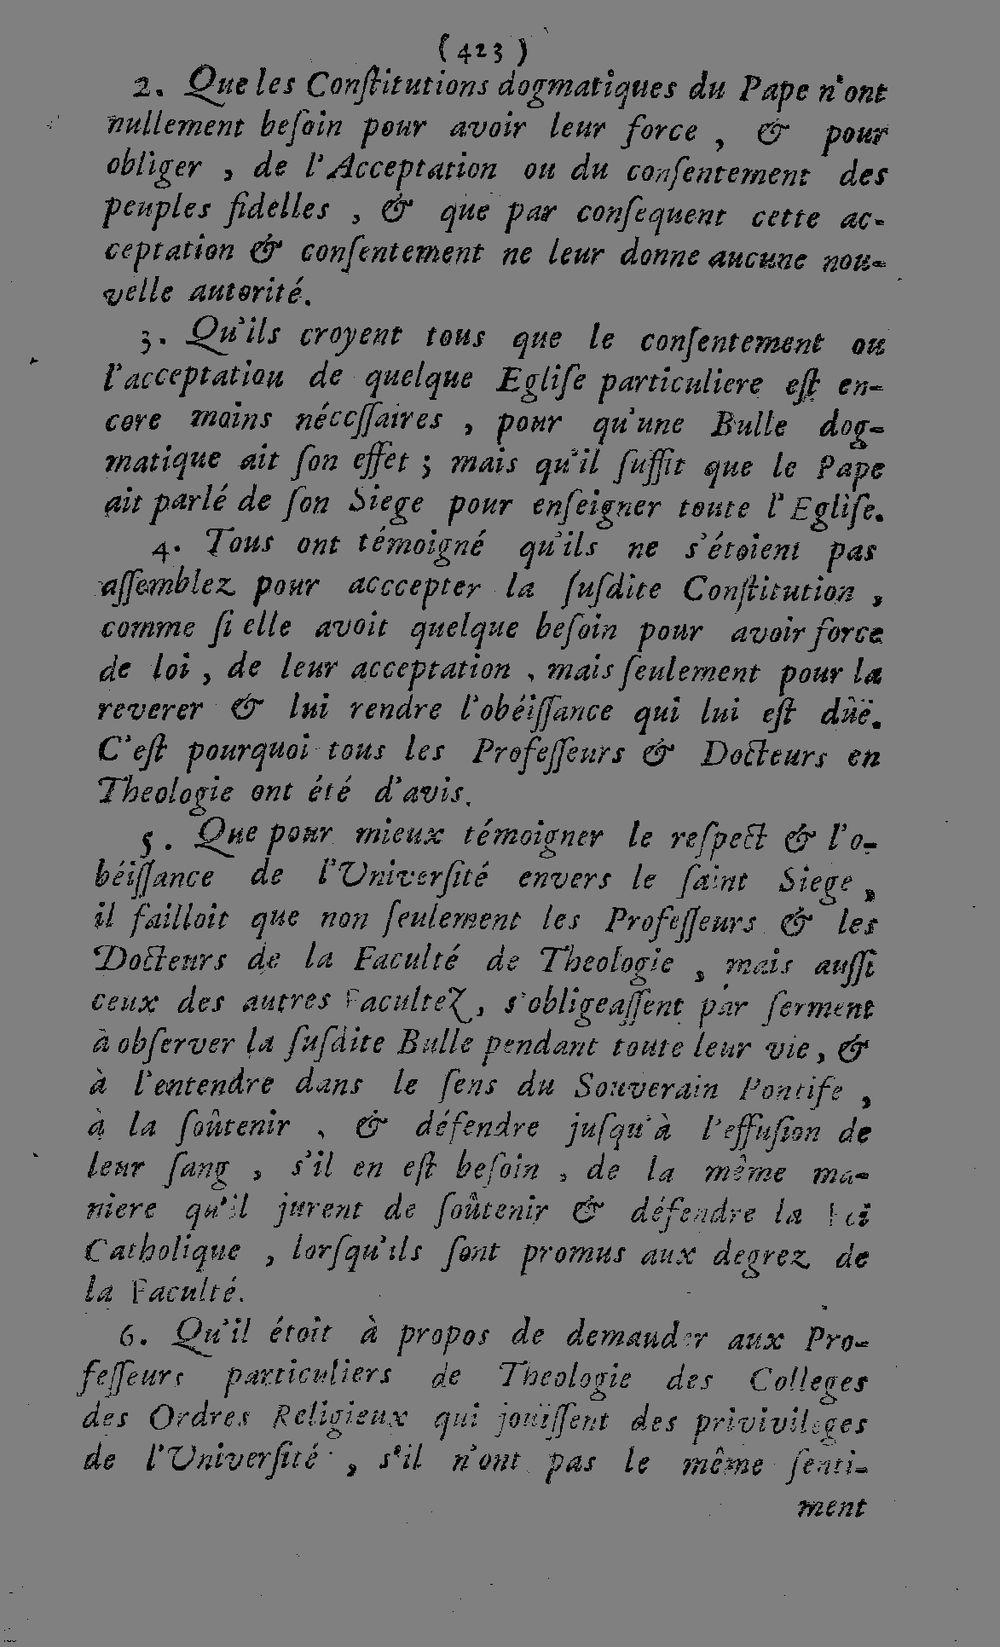 (423)
2. Que les Conſtitutions dogmatiques du Pape n'ont
nullement beſoin pour avoir leur force, & pour
obliger, de l'Acceptation ou du conſentement des
peuples fidelles, & que par conſequent cette ac-
ceptation & conſentement ne leur donne aucune nou-
velle autorité.
3. Qu'ils croyent tous que le conſentement ou
l'acceptation de quelque Egliſe particuliere eſt en-
core moins néceſſaires, pour qu'une Bulle dog-
matique ait ſon effet; mais qu'il ſuffit que le Pape
ait parlé de ſon Siege pour enſeigner toute l'Egliſe.
4. Tous ont témoigné qu'ils ne s'étoient pas
aſſemblez pour acccepter la ſuſdite Conſtitution,
comme ſi elle avoit quelque beſoin pour avoir force
de loi, de leur acceptation, mais ſeulement pour la
reverer & lui rendre l'obéiſſance qui lui eſt dûë.
C'eſt pourquoi tous les Profeſſeurs & Docteurs en
Theologie ont été d'avis.
5. Que pour mieux témoigner le reſpect & l'o-
béiſſance de l'Univerſité envers le ſaint Siege,
il failloit que non ſeulement les Profeſſeurs & les
Docteurs de la Faculté de Theologie, mais auſſi
ceux des autres Facultez, s'obligeaſſent par ſerment
à obſerver la ſuſdite Bulle pendant toute leur vie, &
à l'entendre dans le ſens du Souverain Pontife,
à la ſoûtenir, & défendre juſqu'à l'effuſion de
leur ſang, s'il en eſt beſoin, de la même ma-
niere qu'il jurent de ſoûtenir & défendre la Foi
Catholique, lorſqu'ils ſont promus aux degrez de
la Faculté.
6. Qu'il étoit à propos de demander aux Pro-
feſſeurs particuliers de Theologie des Colleges
des Ordres Religieux qui joüiſſent des privivileges
de l'Univerſité, s'il n'ont pas le même ſenti-
ment